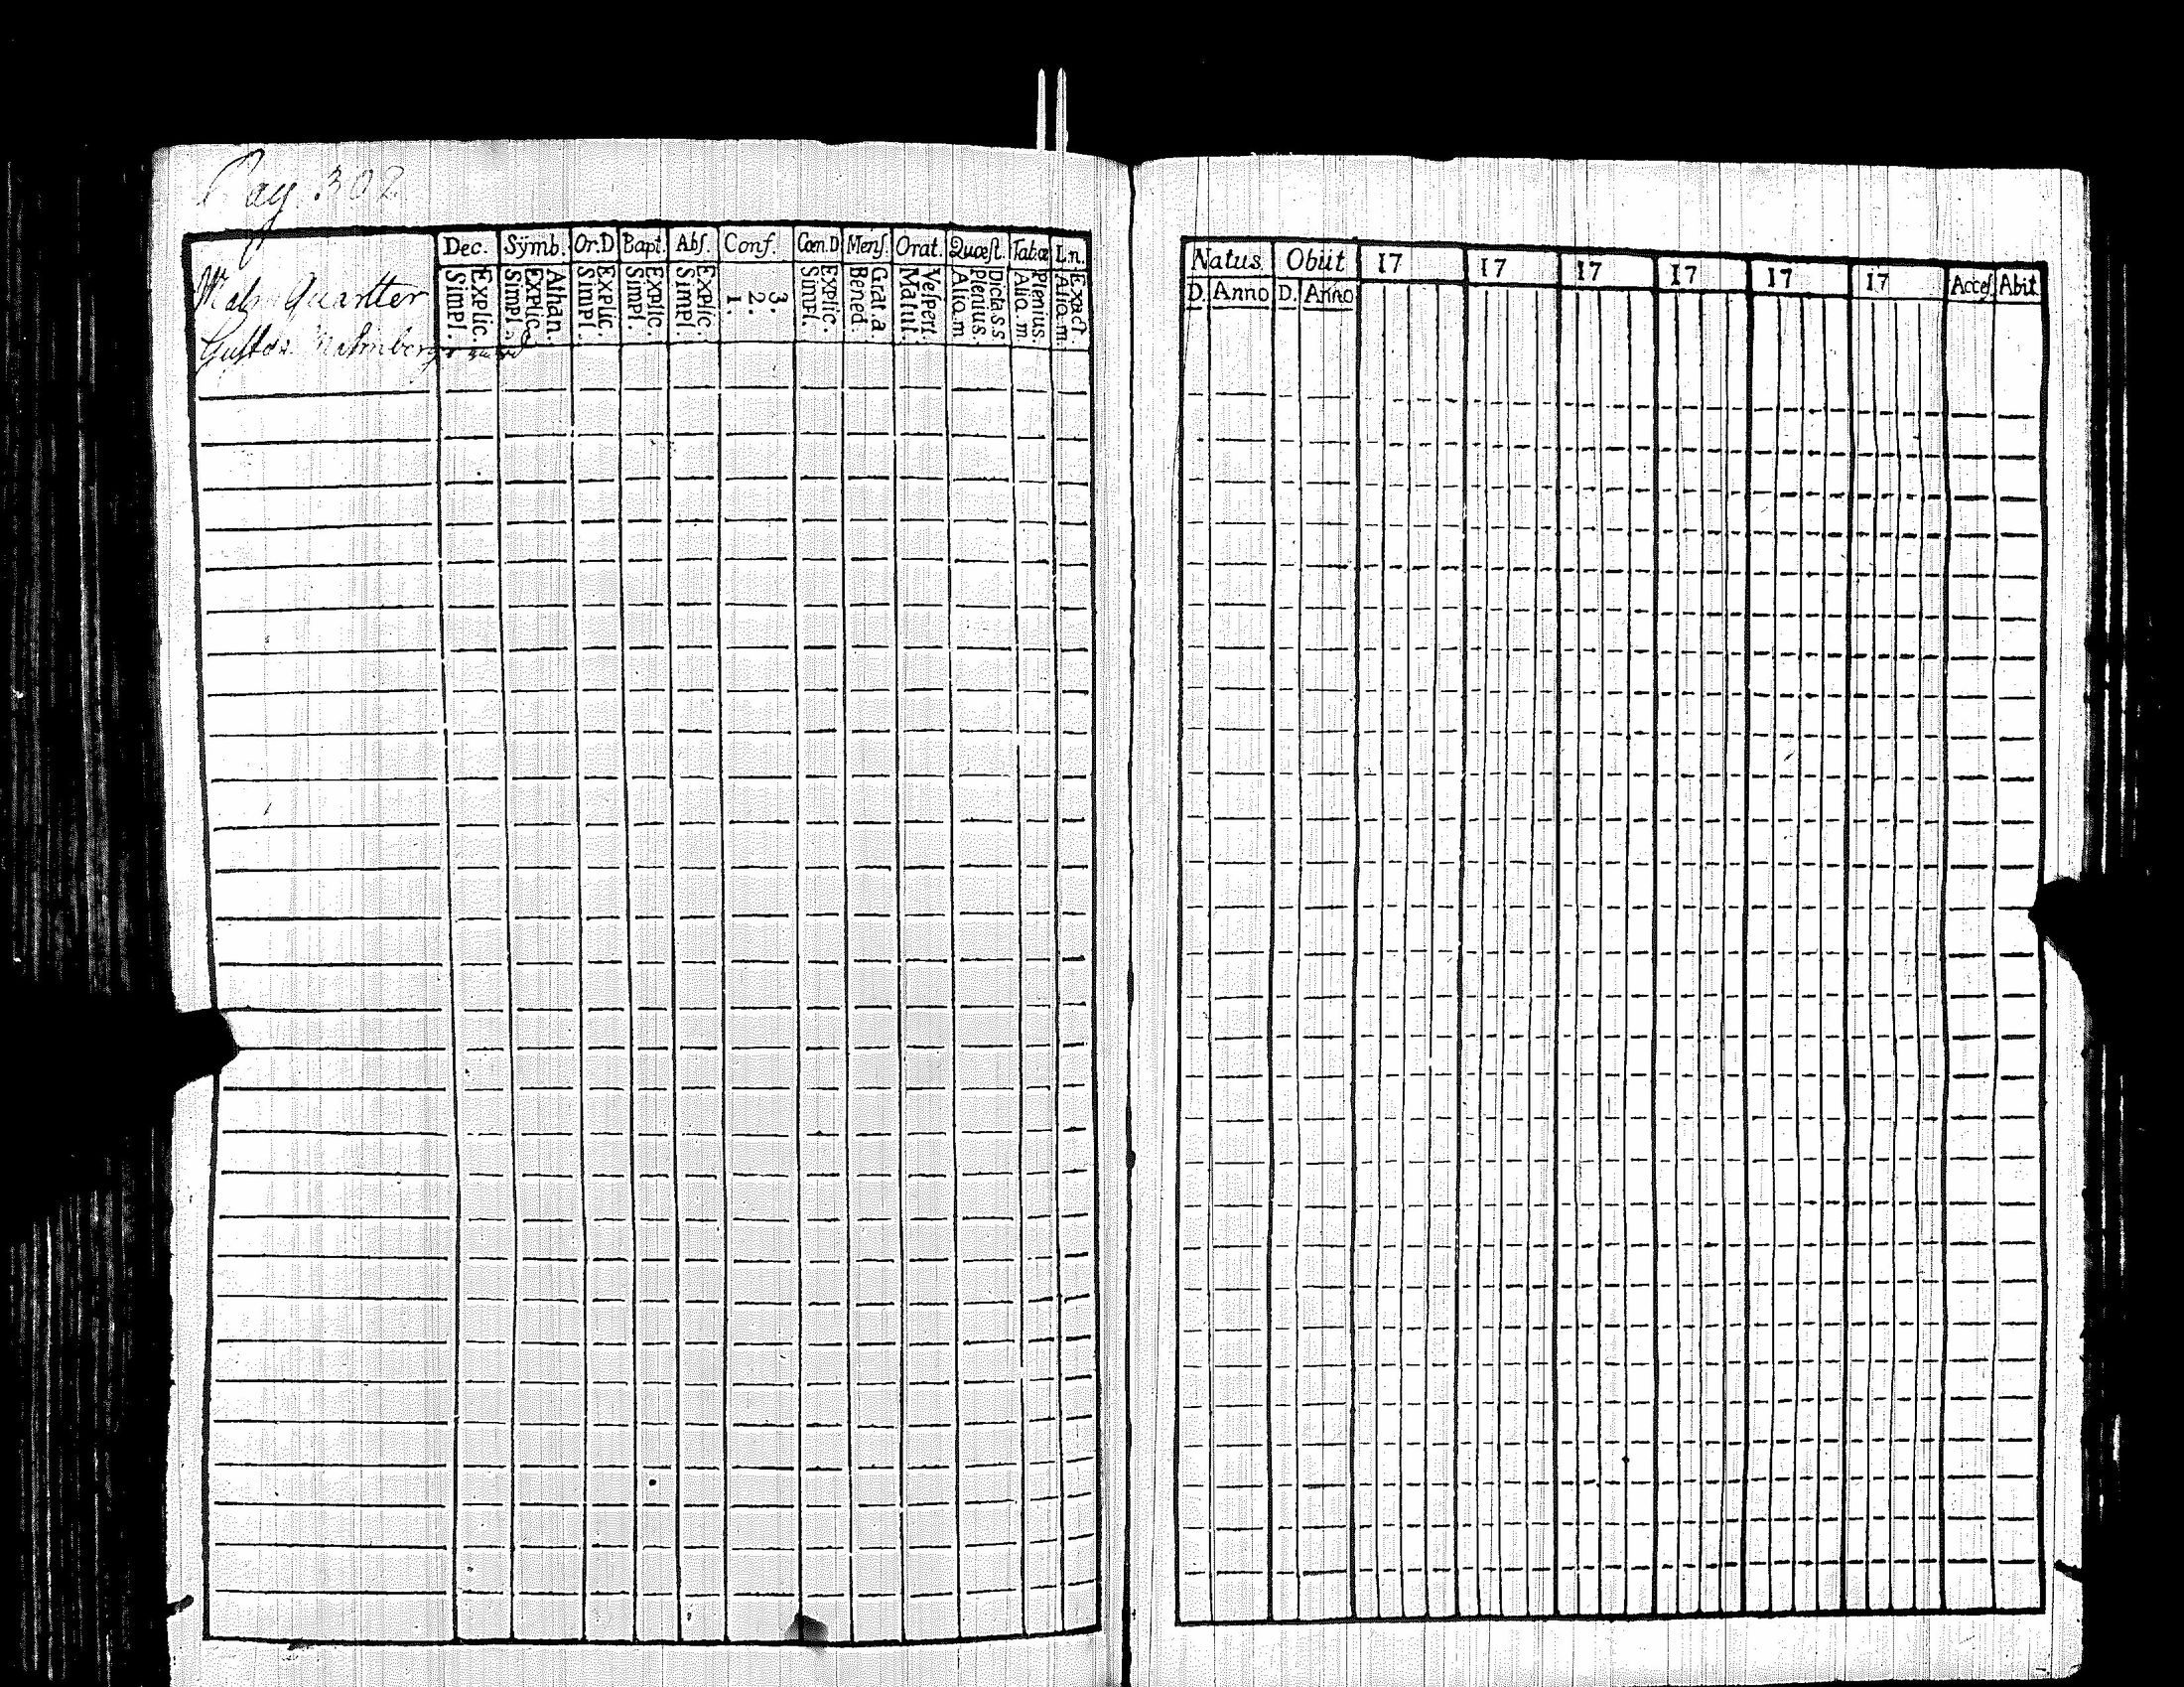 Pag. 302
Dec. Sÿmb. Or.D Bapt. Abſ. Conf. Cœn.D Menſ. Orat. Quæſt. Tabœ L.n.
Explic. Simpl. Athan. Explic. Simpl. Explic. Simpl. Explic. Simpl. Explic. Simpl. 3. 2. 1. Explic. Simpl. Grat.a. Bened. Veſpert. Matut. Dicta.s.s Plenius. Aliq.m Plenius. Aliq.m Exact. Aliq.m
Malm Quartter
Gustav Malmberg
Natus. Obiit 17 17 17 17 17 17 Acceſ. Abit
D. Anno D. Anno